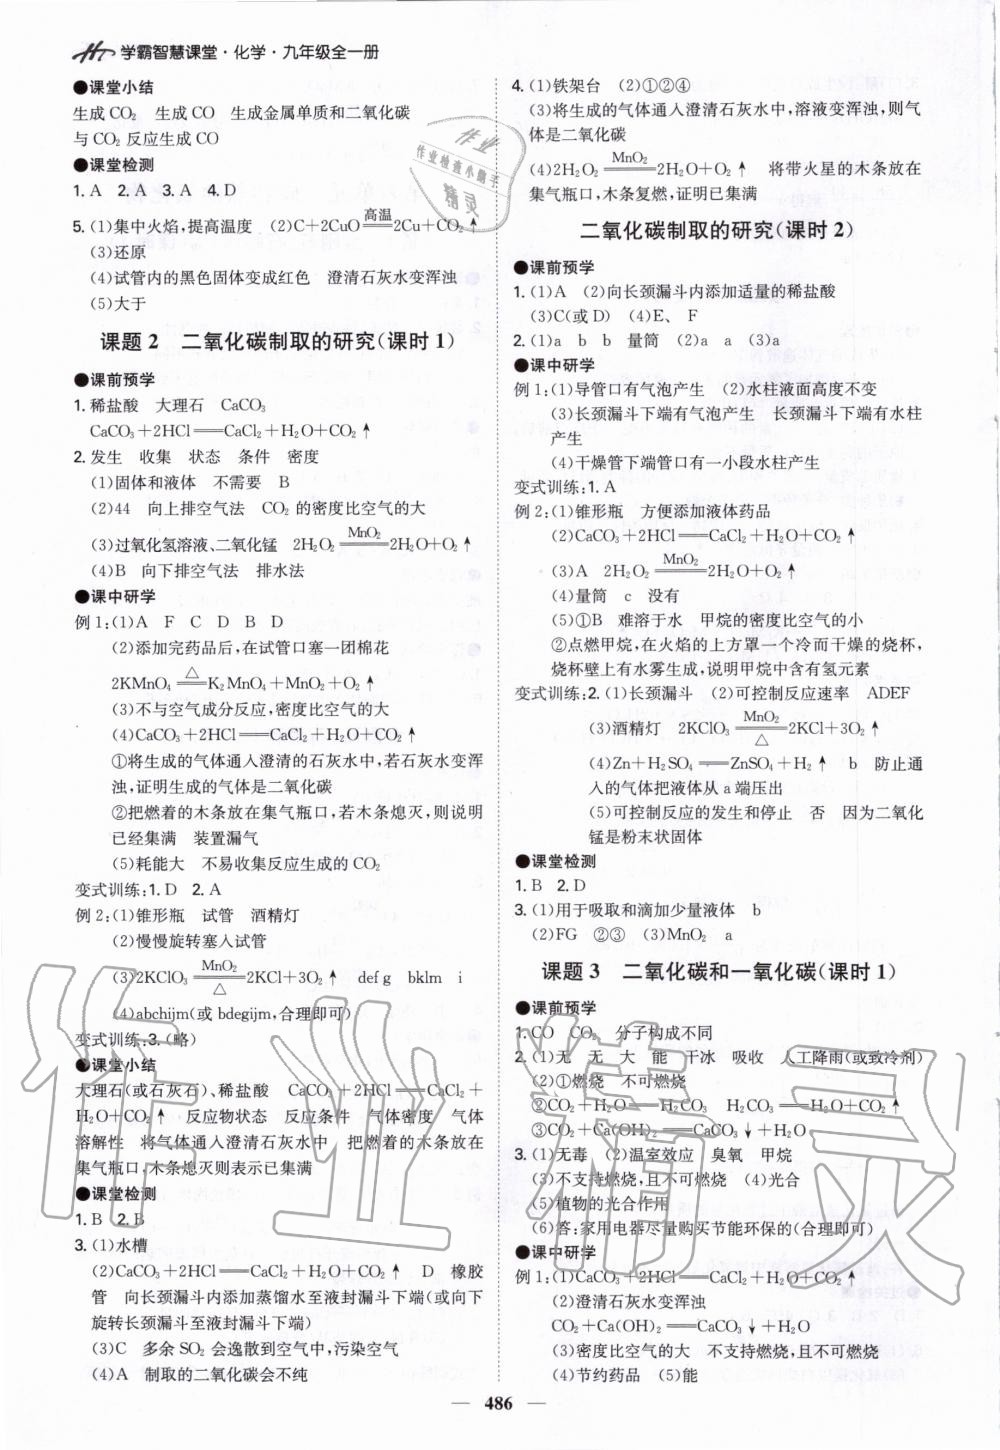 学霸智慧课堂·化学·九年级全一册
●课堂小结
生成CO₂　生成CO　生成金属单质和二氧化碳
与CO₂反应生成CO
●课堂检测
1. A　2. A　3. A　4. D
5. (1)集中火焰,提高温度　(2)C+2CuO══高温══2Cu+CO₂↑
(3)还原
(4)试管内的黑色固体变成红色　澄清石灰水变浑浊
(5)大于
课题2　二氧化碳制取的研究(课时1)
●课前预学
1. 稀盐酸　大理石　CaCO₃
CaCO₃+2HCl══CaCl₂+H₂O+CO₂↑
2. 发生　收集　状态　条件　密度
(1)固体和液体　不需要　B
(2)44　向上排空气法　CO₂的密度比空气的大
(3)过氧化氢溶液、二氧化锰　2H₂O₂══MnO₂══2H₂O+O₂↑
(4)B　向下排空气法　排水法
●课中研学
例1:(1)A　F　C　D　B　D
(2)添加完药品后,在试管口塞一团棉花
2KMnO₄══△══K₂MnO₄+MnO₂+O₂↑
(3)不与空气成分反应,密度比空气的大
(4)CaCO₃+2HCl══CaCl₂+H₂O+CO₂↑
①将生成的气体通入澄清的石灰水中,若石灰水变浑
浊,证明生成的气体是二氧化碳
②把燃着的木条放在集气瓶口,若木条熄灭,则说明
已经集满　装置漏气
(5)耗能大　不易收集反应生成的CO₂
变式训练:1. D　2. A
例2:(1)锥形瓶　试管　酒精灯
(2)慢慢旋转塞入试管
(3)2KClO₃══MnO₂/△══2KCl+3O₂↑　defg　bklm　i
(4)abchijm(或bdegijm,合理即可)
变式训练:3. (略)
●课堂小结
大理石(或石灰石)、稀盐酸　CaCO₃+2HCl══CaCl₂+
H₂O+CO₂↑　反应物状态　反应条件　气体密度　气体
溶解性　将气体通入澄清石灰水中　把燃着的木条放在
集气瓶口,木条熄灭则表示已集满
●课堂检测
1. B　2. B
3. (1)水槽
(2)CaCO₃+2HCl══CaCl₂+H₂O+CO₂↑　D　橡胶
管　向长颈漏斗内添加蒸馏水至液封漏斗下端(或向下
旋转长颈漏斗至液封漏斗下端)
(3)C　多余SO₂会逸散到空气中,污染空气
(4)A　制取的二氧化碳会不纯
4. (1)铁架台　(2)①②④
(3)将生成的气体通入澄清石灰水中,溶液变浑浊,则气
体是二氧化碳
(4)2H₂O₂══MnO₂══2H₂O+O₂↑　将带火星的木条放在
集气瓶口,木条复燃,证明已集满
二氧化碳制取的研究(课时2)
●课前预学
1. (1)A　(2)向长颈漏斗内添加适量的稀盐酸
(3)C(或D)　(4)E、F
2. (1)a　b　b　量筒　(2)a　a　(3)a
●课中研学
例1:(1)导管口有气泡产生　(2)水柱液面高度不变
(3)长颈漏斗下端有气泡产生　长颈漏斗下端有水柱
产生
(4)干燥管下端管口有一小段水柱产生
变式训练:1. A
例2:(1)锥形瓶　方便添加液体药品
(2)CaCO₃+2HCl══CaCl₂+H₂O+CO₂↑
(3)A　2H₂O₂══MnO₂══2H₂O+O₂↑
(4)量筒　c　没有
(5)①B　难溶于水　甲烷的密度比空气的小
②点燃甲烷,在火焰的上方罩一个冷而干燥的烧杯,
烧杯壁上有水雾生成,说明甲烷中含有氢元素
变式训练:2. (1)长颈漏斗　(2)可控制反应速率　ADEF
(3)酒精灯　2KClO₃══MnO₂/△══2KCl+3O₂↑
(4)Zn+H₂SO₄══ZnSO₄+H₂↑　b　防止通
入的气体把液体从a端压出
(5)可控制反应的发生和停止　否　因为二氧化
锰是粉末状固体
●课堂检测
1. B　2. D
3. (1)用于吸取和滴加少量液体　b
(2)FG　②③　(3)MnO₂　a
课题3　二氧化碳和一氧化碳(课时1)
●课前预学
1. CO　CO₂　分子构成不同
2. (1)无　无　大　能　干冰　吸收　人工降雨(或致冷剂)
(2)①燃烧　不可燃烧
②CO₂+H₂O══H₂CO₃　H₂CO₃══H₂O+CO₂↑
③CO₂+Ca(OH)₂══CaCO₃↓+H₂O
3. (1)无毒　(2)温室效应　臭氧　甲烷
(3)不支持燃烧,且不可燃烧　(4)光合
(5)植物的光合作用
(6)答:家用电器尽量购买节能环保的(合理即可)
●课中研学
例1:(1)CaCO₃+2HCl══CaCl₂+H₂O+CO₂↑
(2)澄清石灰水变浑浊
CO₂+Ca(OH)₂══CaCO₃↓+H₂O
(3)密度比空气的大　不支持燃烧,且不可燃烧
(4)节约药品　(5)能
— 486 —
作业
作业检查小助手
精灵
作业精灵